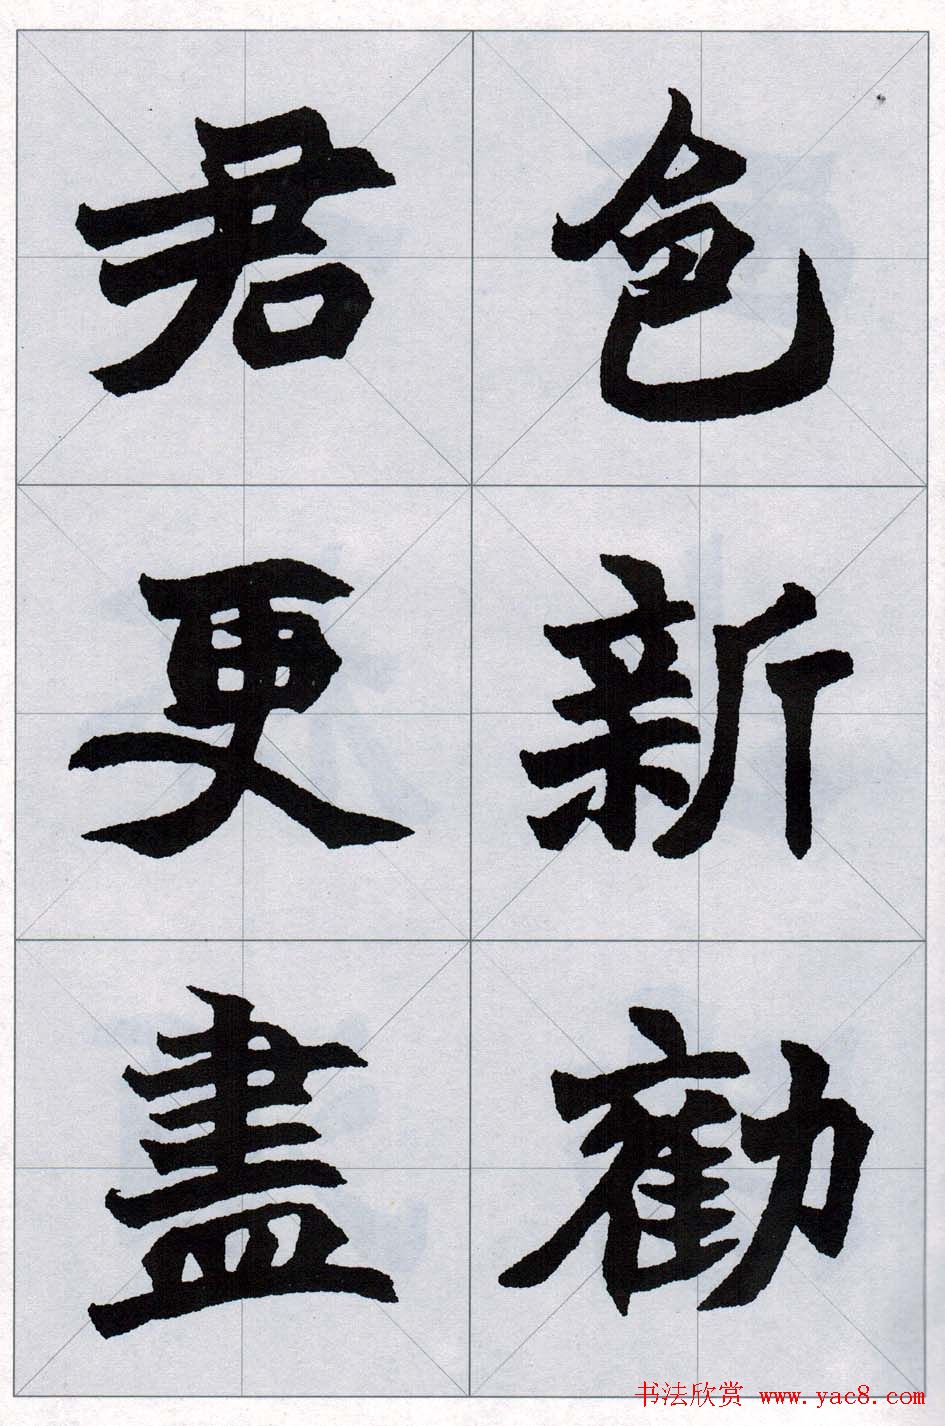 色新勸
君更盡
书法欣赏 www.yac8.com